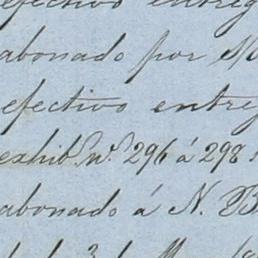 efectivo entreg
abonado por
efectivo entreg
exhib. nº. 296 á 298
abonado á N. B